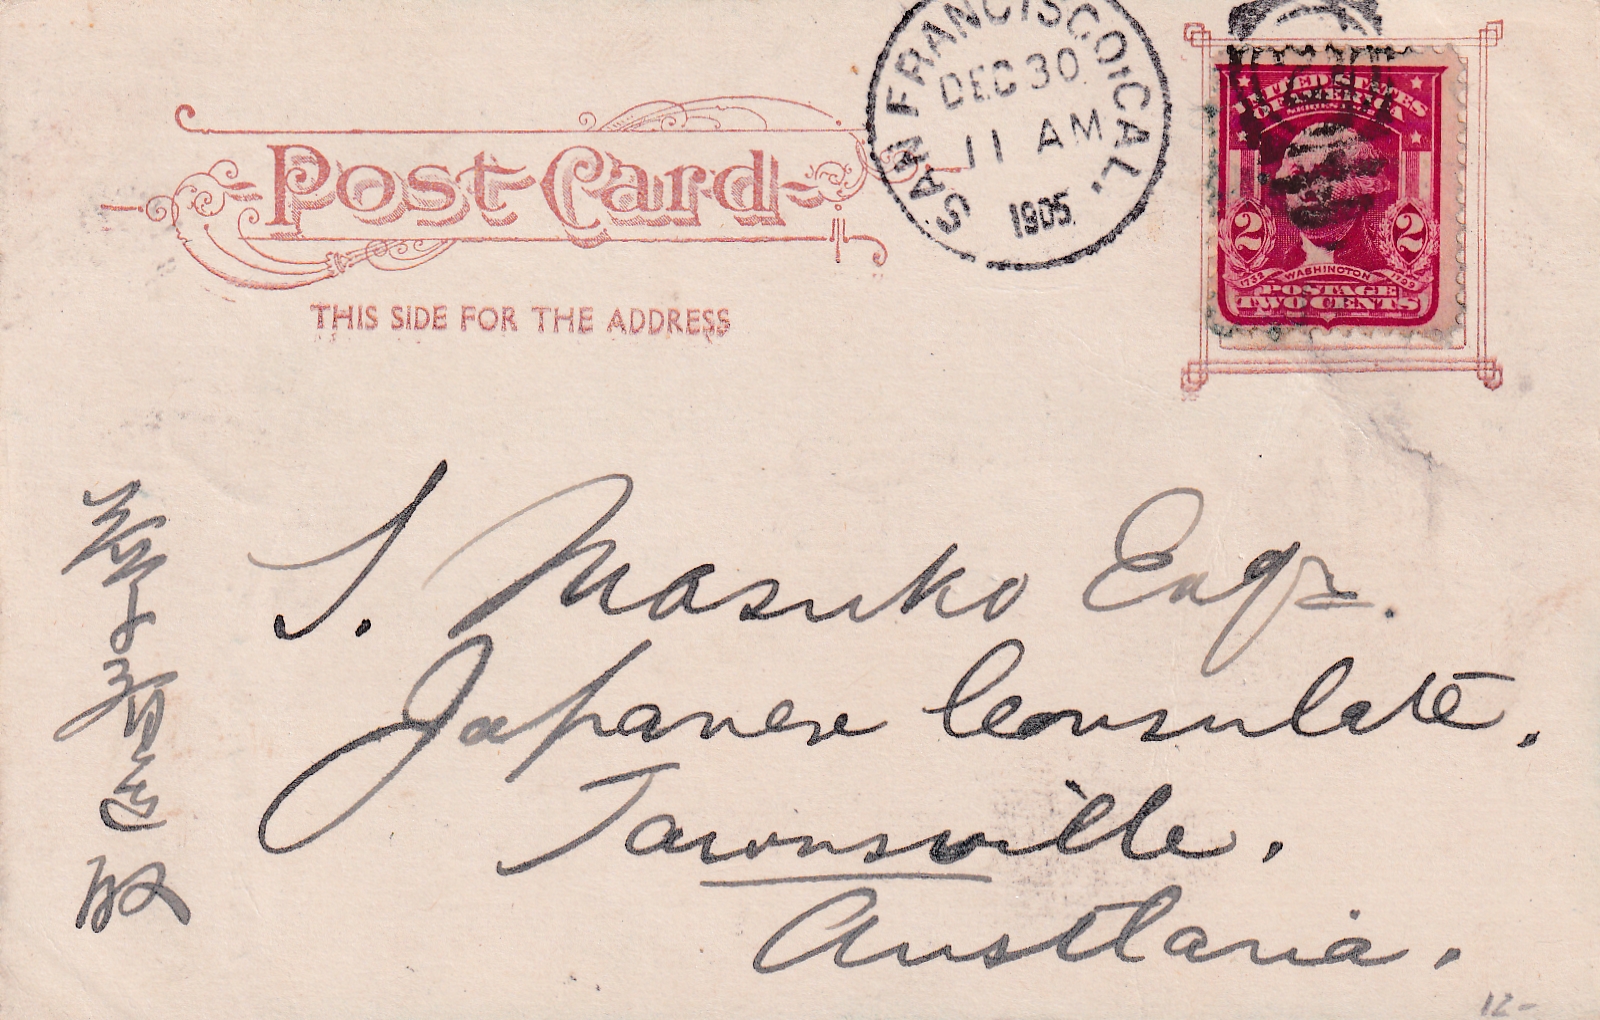 SAN FRANCISCO, CAL.
DEC 30
11 AM
1905
UNITED STATES
OF AMERICA
2 2
1732 WASHINGTON 1799
POSTAGE
TWO CENTS
Post Card
THIS SIDE FOR THE ADDRESS
S. Masuko Esqr.
Japanese Consulate.
Townsville.
Austlaria.
12-